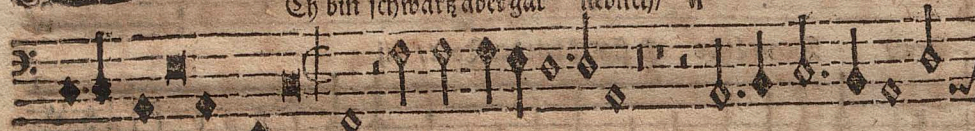 Ch bin schwartz aber gar lieblich/